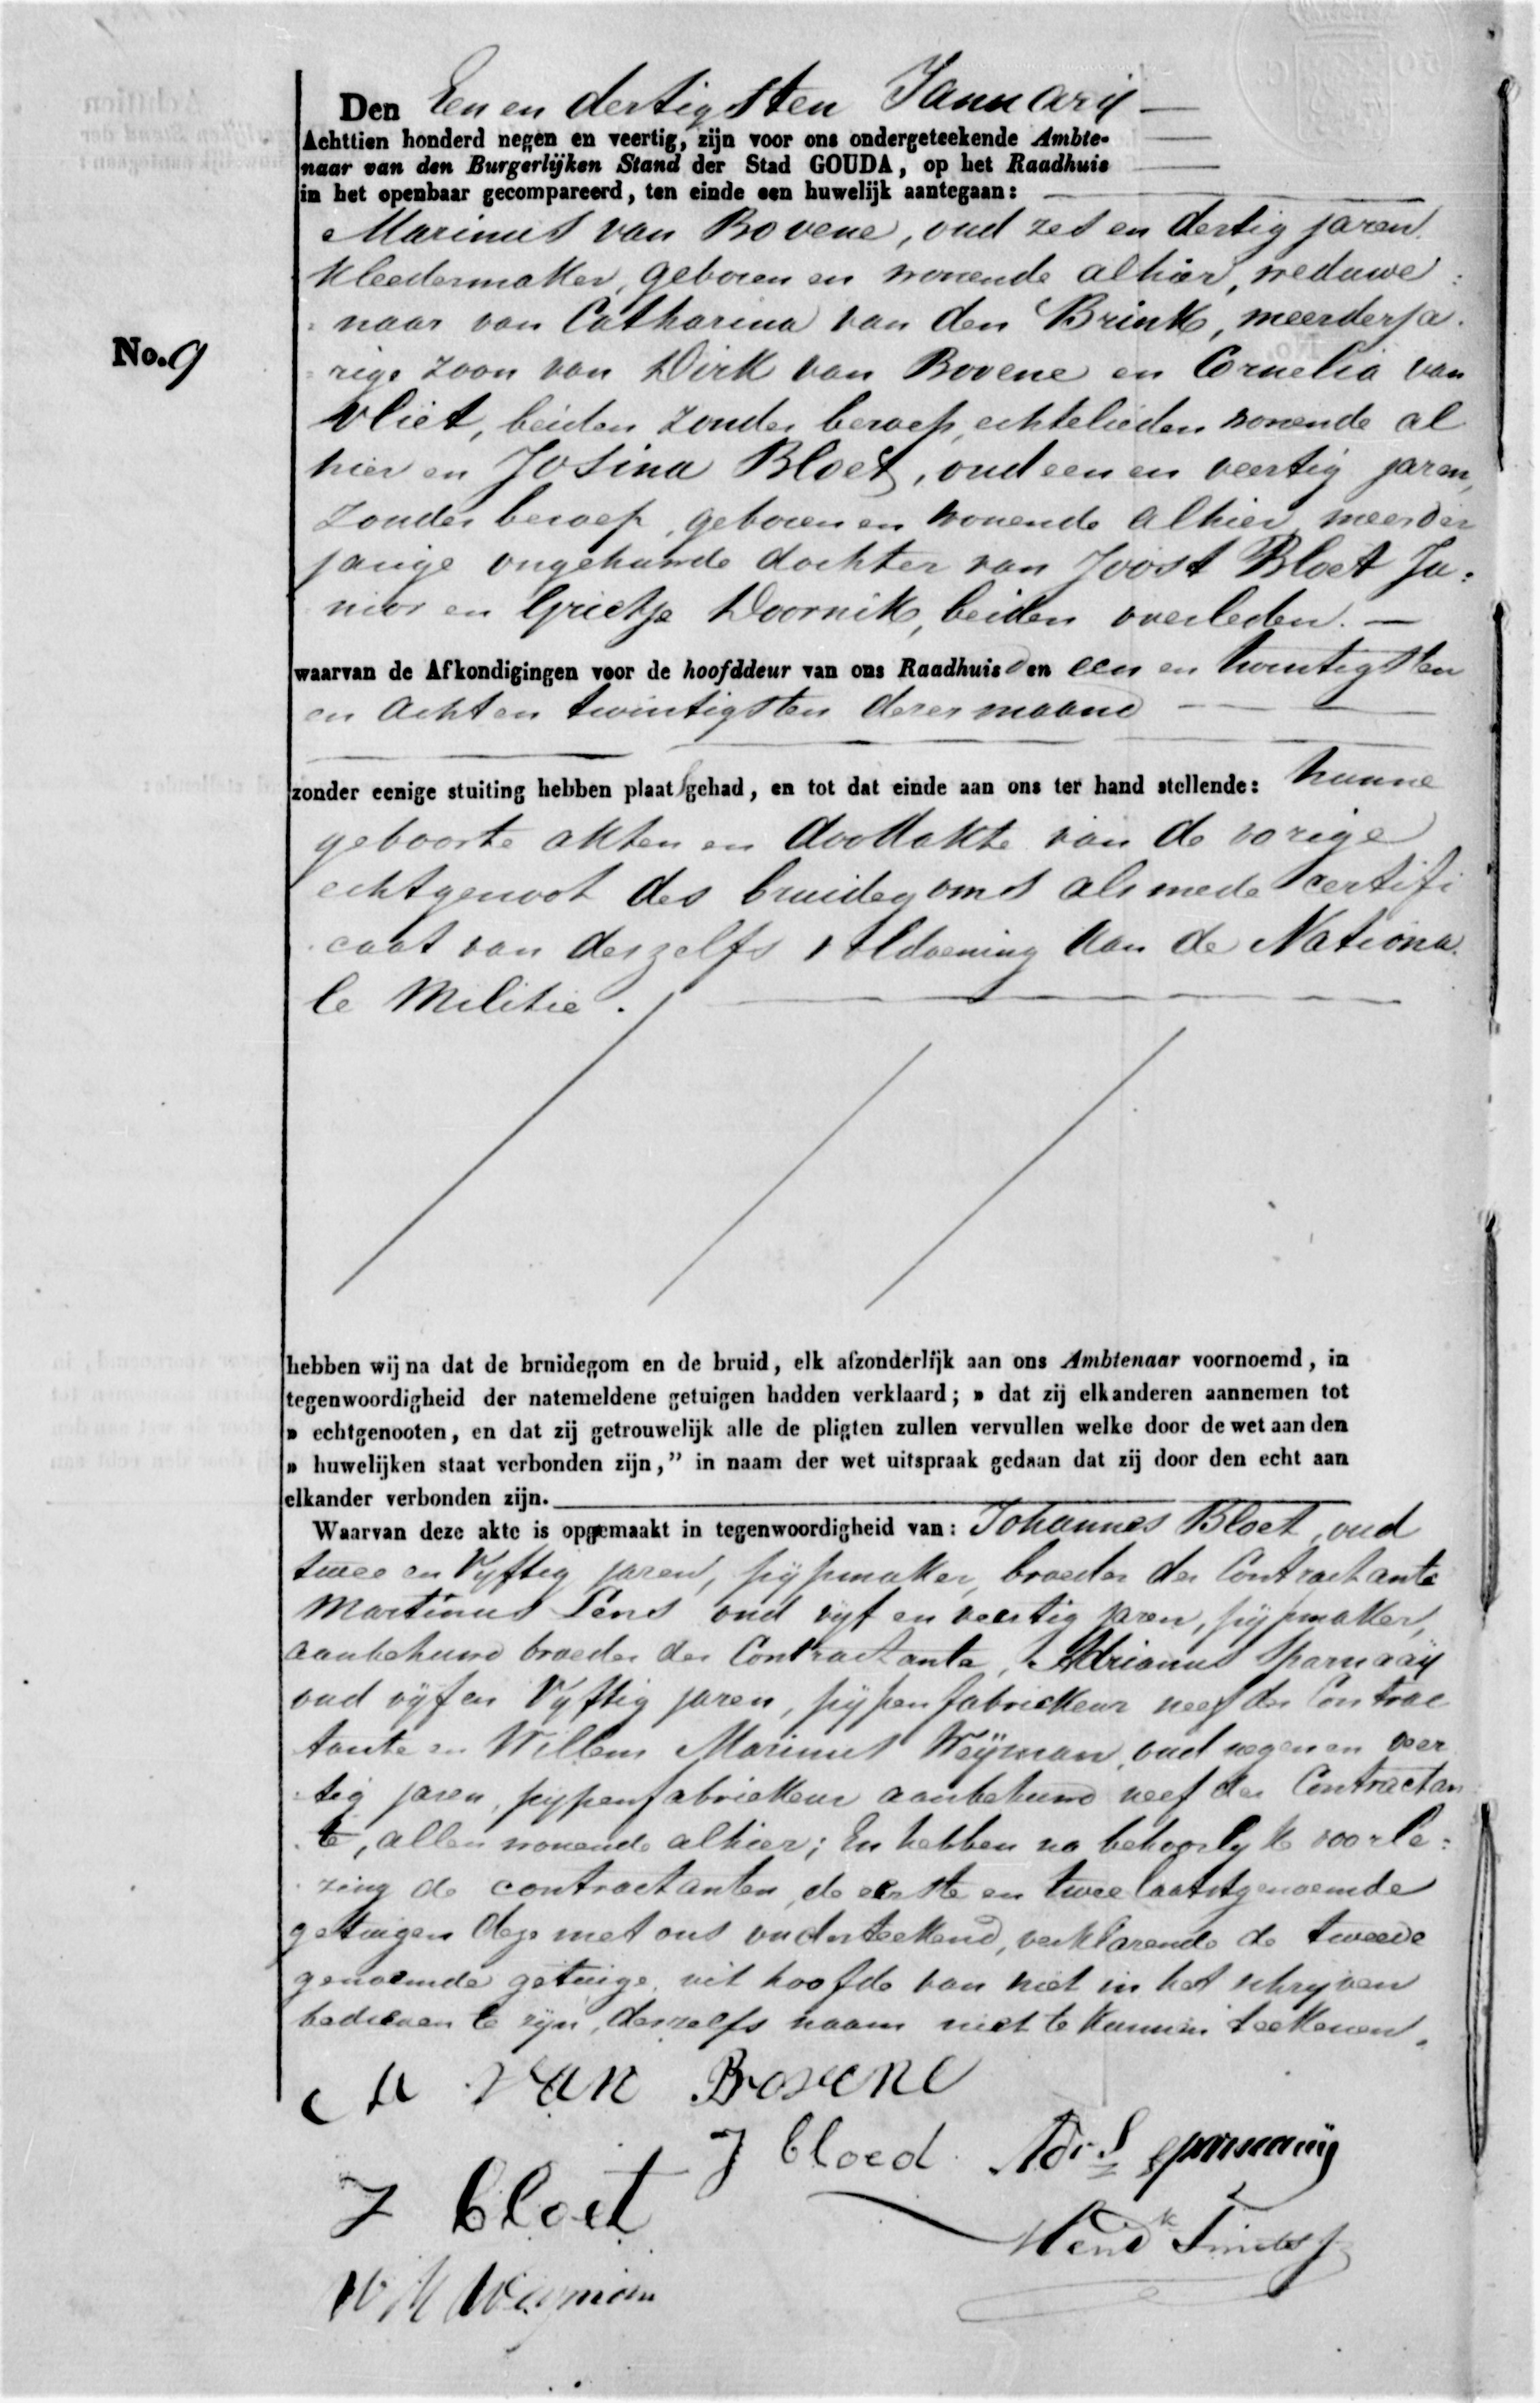 Den Een en dertigsten Januarij
Achttien honderd negen en veertig, zijn voor ons ondergeteekende Ambte-
naar van den Burgerlijken Stand der Stad GOUDA, op het Raadhuis
in het openbaar gecompareerd, ten einde een huwelijk aantegaan:
Marinus van Bovene, oud zes en dertig jaren
kleedermaker, geboren en wonende alhier, weduwe
naar van Catharina van den Brink, meerderja
No. 9
rige zoon van Dirk van Bovene en Cornelia van
Vliet, beiden zonder beroep, echtelieden wonende al
hier en Josina Bloet, oud een en veertig jaren,
zonder beroep, geboren en wonende alhier, meerder
jarige ongehuwde dochter van Joost Bloet Ju:
nior en Grietje Doornik, beiden overleden.
waarvan de Afkondigingen voor de hoofddeur van ons Raadhuis den een en twintigsten
en acht en twintigsten dezer maand
zonder eenige stuiting hebben plaats gehad, en tot dat einde aan ons ter hand stellende: hunne
geboorte akten en doodakte van de vorige
echtgenoot des bruidegoms alsmede certifi
caat van deszelfs voldoening aan de Nationa
le Militie.
hebben wij na dat de bruidegom en de bruid, elk afzonderlijk aan ons Ambtenaar voornoemd, in
tegenwoordigheid der natemeldene getuigen hadden verklaard; » dat zij elkanderen aannemen tot
» echtgenooten, en dat zij getrouwelijk alle de pligten zullen vervullen welke door de wet aan den
» huwelijken staat verbonden zijn," in naam der wet uitspraak gedaan dat zij door den echt aan
elkander verbonden zijn.
Waarvan deze akte is opgemaakt in tegenwoordigheid van: Johannes Bloet, oud
twee en Vyftig jaren, pijpmaker, broeder der Contractante
Martinus Pens oud vyf en veertig jaren, pijpmaker,
aanbehuwd broeder der Contractante, Adrianus Sparnaaij
oud vijf en Vyftig jaren, pijpenfabriekeur neef der Contrac
tante en Willem Marinus Weijman, oud negen en veer
tig jaren, pijpenfabriekeur aanbehuwd neef der Contractan
te, allen wonende alhier; En hebben na behoorlyke voorle:
zing de contractanten, de eerste en twee laatstgenoemde
getuigen deze met ons onderteekend, verklarende de tweede
genoemde getuige uit hoofde van niet in het schryven
bedreven te zijn, deszelfs naam niet te kunnen teekenen.
M van Bovene
J bloed Adr.s Sparnaaij
J bloet
Hend.k
W M Weijman